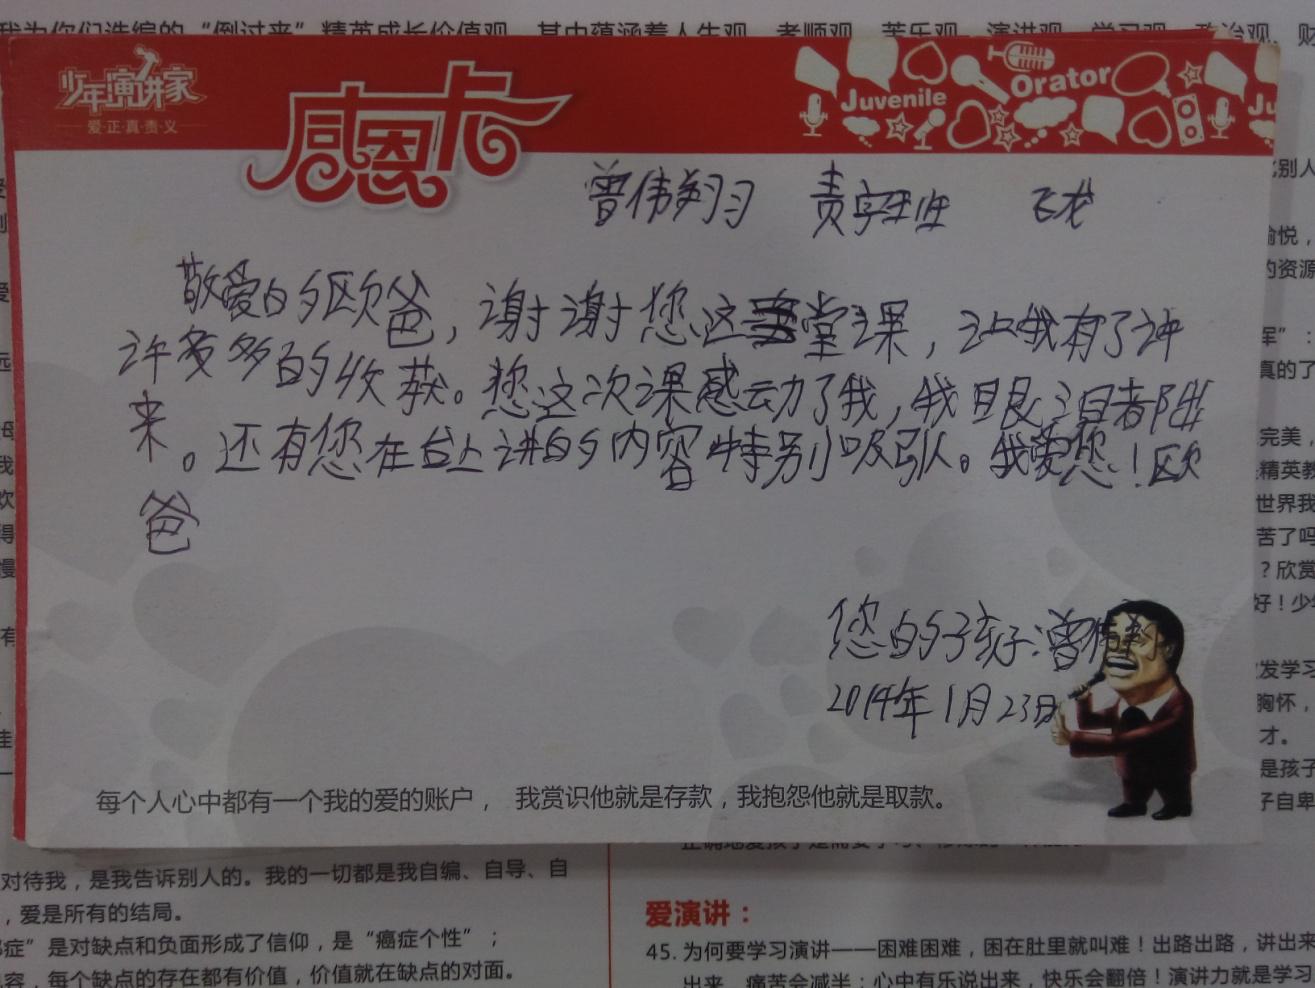 我为你们选编的“倒过来”精英成长价值观，其中蕴涵着人生观、孝顺观、苦乐观、演讲观、学习观、政治观、财
少年演讲家
爱·正·真·责·义
感恩卡
Juvenile
Orator
Ju
曾伟翔习 责字班 飞龙
敬爱的欧爸，谢谢您这堂课，让我有了许
许多多的收获。您这次课感动了我，我眼泪都掉
来。还有您在台上讲的内容特别吸引人。我爱您！欧
爸
您的孩子：曾伟翔
2014年1月23日
每个人心中都有一个我的爱的账户， 我赏识他就是存款，我抱怨他就是取款。
比别人
愉悦，
的资源
军”：
真的了
完美
精英教
世界我
苦了吗
？欣赏
好！少
发学习
胸怀，
才。
是孩子
子自卑
对待我，是我告诉别人的。我的一切都是我自编、自导、自
，爱是所有的结局。
症”是对缺点和负面形成了信仰，是“癌症个性”；
容，每个缺点的存在都有价值，价值就在缺点的对面。
爱演讲：
45. 为何要学习演讲——困难困难，困在肚里就叫难！出路出路，讲出来
出来，痛苦会减半；心中有乐说出来，快乐会翻倍！演讲力就是学习